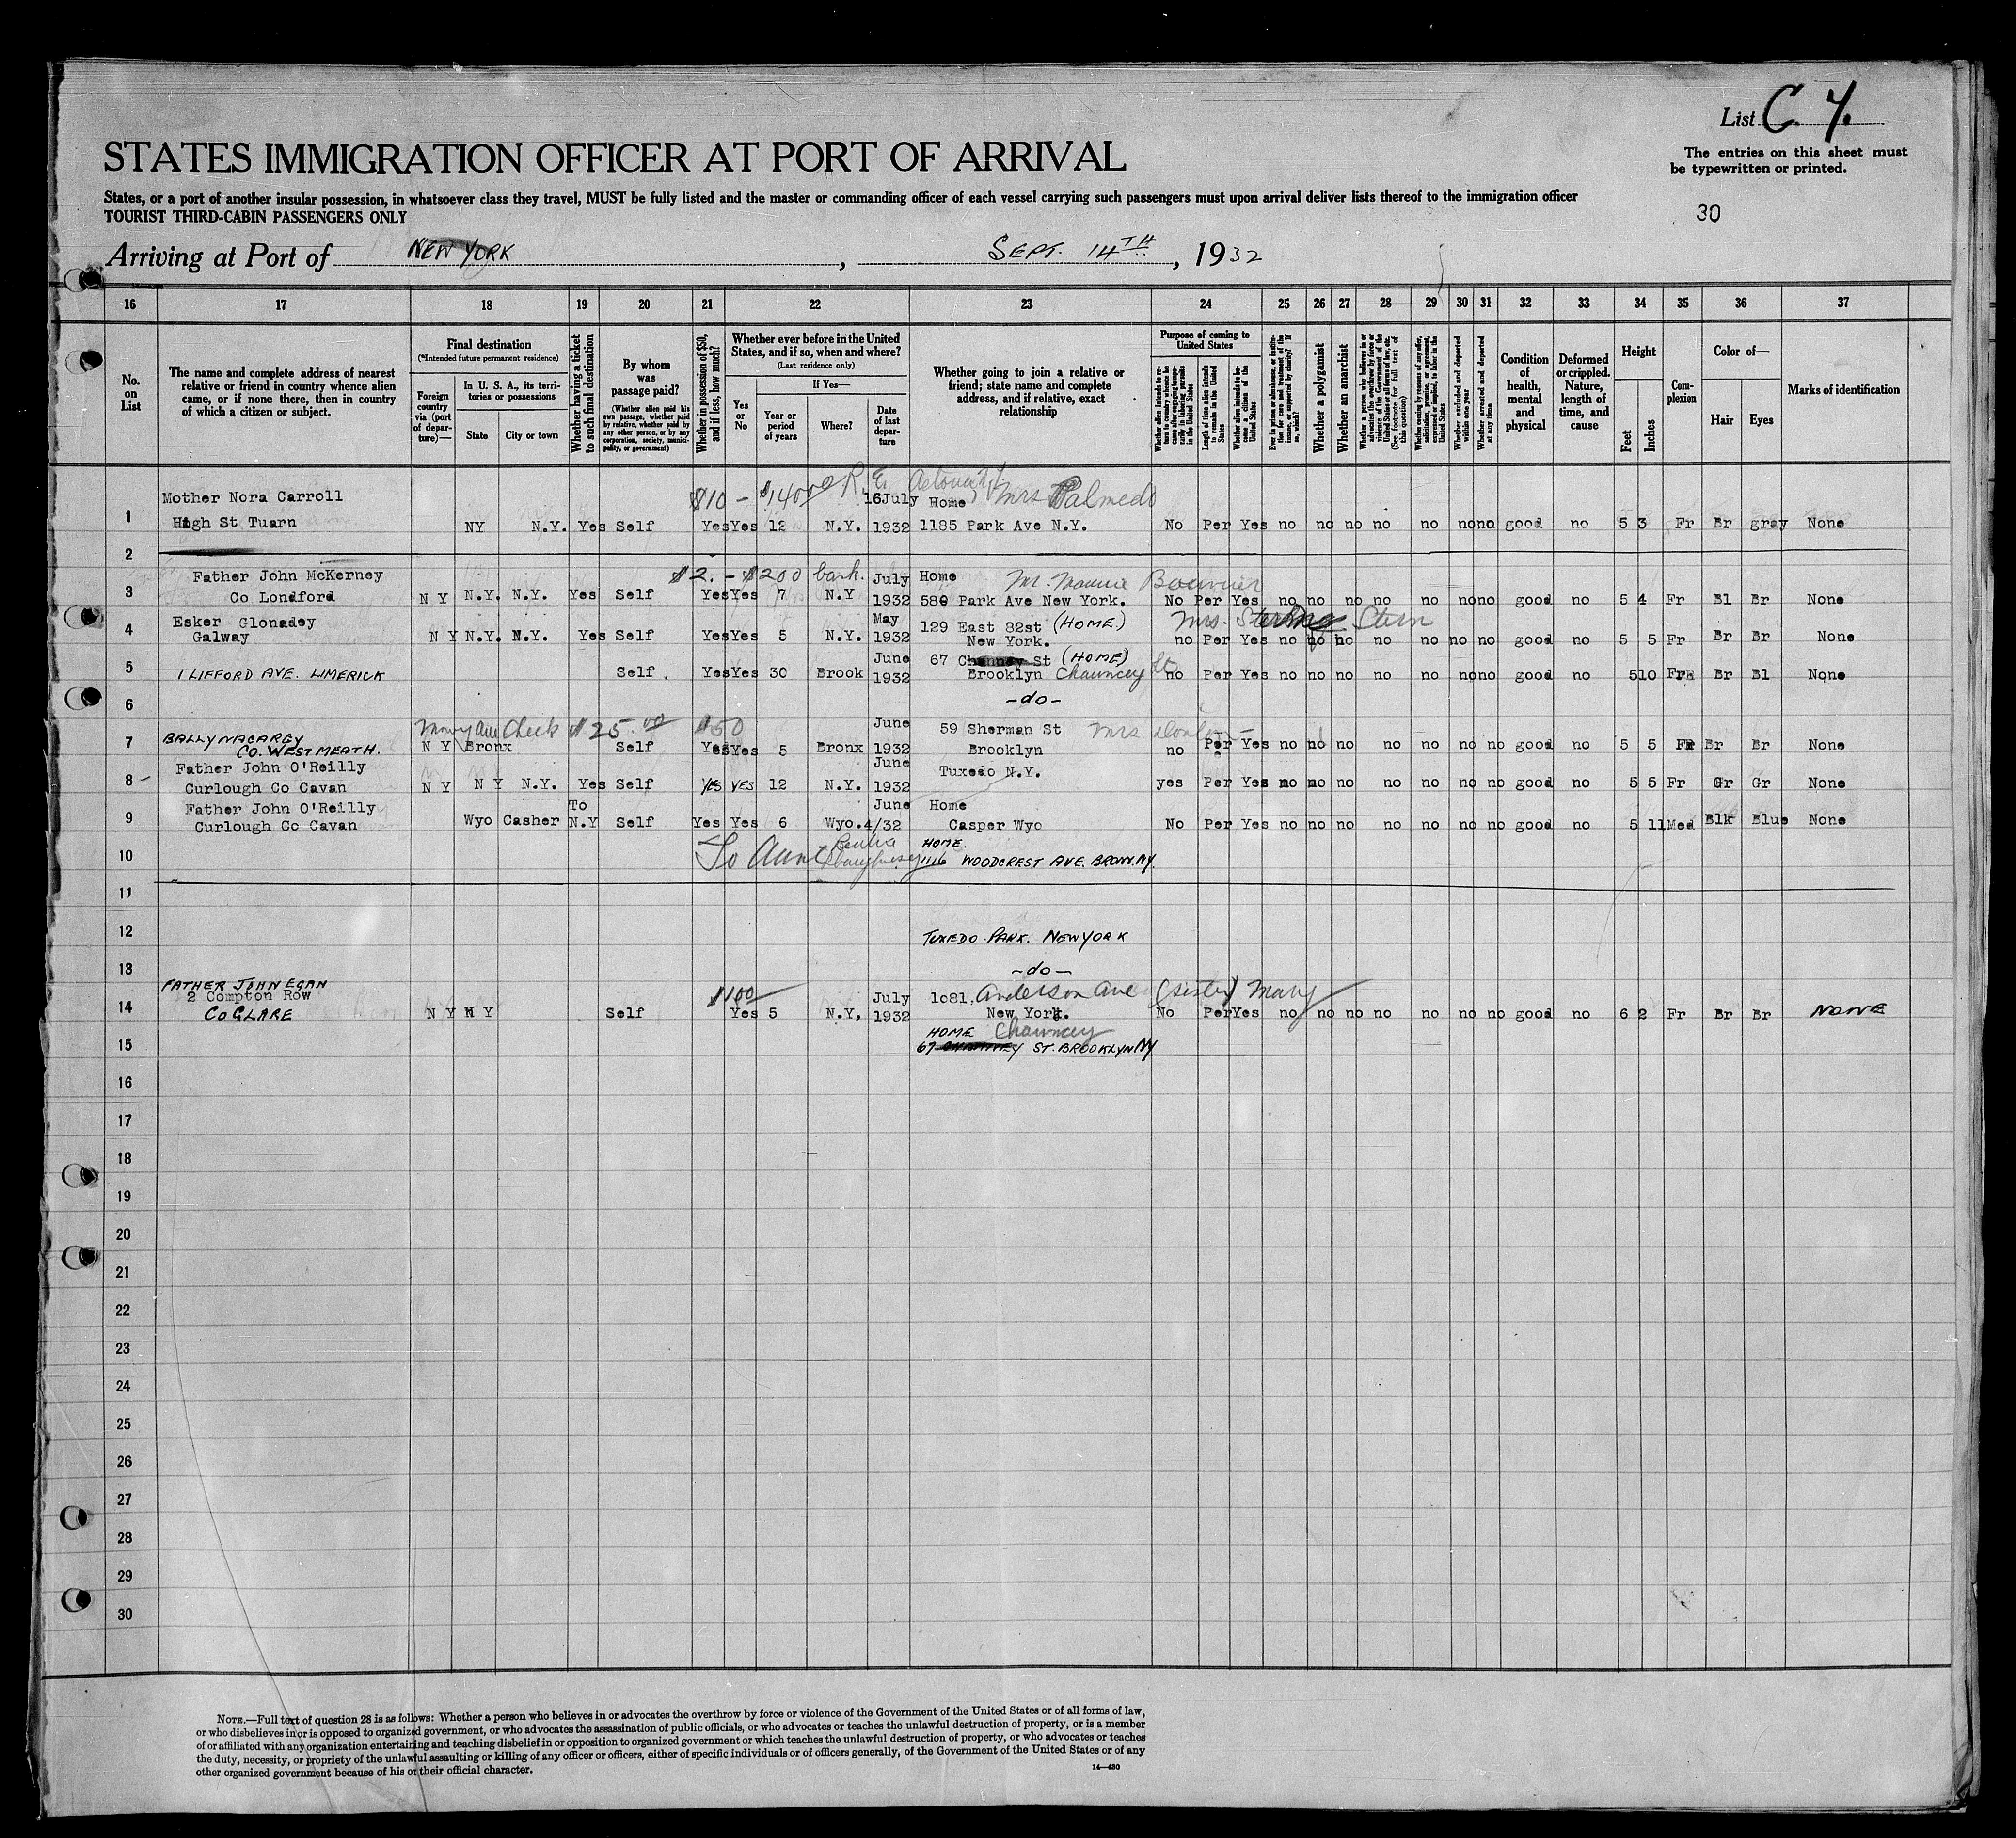 List C. 7.
The entries on this sheet must
be typewritten or printed.
30
STATES IMMIGRATION OFFICER AT PORT OF ARRIVAL
States, or a port of another insular possession, in whatsoever class they travel, MUST be fully listed and the master or commanding officer of each vessel carrying such passengers must upon arrival deliver lists thereof to the immigration officer
TOURIST THIRD-CABIN PASSENGERS ONLY
Arriving at Port of NEW YORK, SEPT. 14TH, 1932
16 17 18 19 20 21 22 23 24 25 26 27 28 29 30 31 32 33 34 35 36 37
No. on List
The name and complete address of nearest relative or friend in country whence alien came, or if none there, then in country of which a citizen or subject.
Final destination
(*Intended future permanent residence)
Foreign country via (port of departure)—
In U. S. A., its territories or possessions
State
City or town
Whether having a ticket to such final destination
By whom was passage paid?
(Whether alien paid his own passage, whether paid by relative, whether paid by any other person, or by any corporation, society, municipality, or government)
Whether in possession of $50, and if less, how much?
Whether ever before in the United States, and if so, when and where?
(Last residence only)
Yes or No
If Yes—
Year or period of years
Where?
Date of last departure
Whether going to join a relative or friend; state name and complete address, and if relative, exact relationship
Purpose of coming to United States
Whether alien intends to return to country whence he came after engaging temporarily in laboring pursuits in the United States
Length of time alien intends to remain in the United States
Whether alien intends to become a citizen of the United States
Ever in prison or almshouse, or institution for care and treatment of the insane, or supported by charity? If so, which?
Whether a polygamist
Whether an anarchist
Whether a person who believes in or advocates the overthrow by force or violence of the Government of the United States or all forms of law, etc. (See footnote for full text of this question)
Whether coming by reasons of any offer, solicitation, promise, or agreement, expressed or implied, to labor in the United States
Whether excluded and deported within one year
Whether arrested and deported at any time
Condition of health, mental and physical
Deformed or crippled. Nature, length of time, and cause
Height
Feet
Inches
Complexion
Color of—
Hair
Eyes
Marks of identification
$10 - $1400
Mother Nora Carroll 16July Home Mrs Palmedo
1 High St Tuarn NY N.Y. Yes Self Yes Yes 12 N.Y. 1932 1185 Park Ave N.Y. No Per Yes no no no no no no no good no 5 3 Fr Br gray None
2
Father John McKerney $2. - $200 bank. July Home M. Bouvier
3 Co Londford N Y N.Y. N.Y. Yes Self Yes Yes 7 N.Y 1932 580 Park Ave New York. No Per Yes no no no no no no no good no 5 4 Fr Bl Br None
Esker Glonadey May 129 East 82st (HOME.) Mrs. Stern
4 Galway N Y N.Y. N.Y. Yes Self Yes Yes 5 N.Y. 1932 New York. no Per Yes no no no no no no no good no 5 5 Fr Br Br None
June 67 St (HOME)
5 1 LIFFORD AVE. LIMERICK Self Yes Yes 30 Brook 1932 Brooklyn Chauncey St no Per Yes no no no no no no no good no 5 10 Fr Br Bl None
6 -do-
Check $25.00 $50 June 59 Sherman St Mrs
7 BALLYNACARGY
CO. WESTMEATH. N Y Bronx Self Yes Yes 5 Bronx 1932 Brooklyn no Per Yes no no no no no no no good no 5 5 Fr Br Br None
Father John O'Reilly June Tuxedo N.Y.
8 Curlough Co Cavan N Y N Y N.Y. Yes Self YES YES 12 N.Y. 1932 yes Per Yes no no no no no no no good no 5 5 Fr Gr Gr None
Father John O'Reilly To June Home
9 Curlough Co Cavan Wyo Casher N.Y Self Yes Yes 6 Wyo. 4/32 Casper Wyo No Per Yes no no no no no no no good no 5 11 Med Blk Blue None
HOME.
10 To Aunt 1116 WOODCREST AVE. BRONX. NY.
11
12 TUXEDO PARK. NEW YORK
13 -do-
FATHER JOHN EGAN
2 Compton Row $100 July 1081. Anderson Ave (sister) Mary
14 CO CLARE N Y N Y Self Yes 5 N.Y, 1932 New York. No Per Yes no no no no no no no good no 6 2 Fr Br Br NONE
HOME Chauncey
15 67 ST. BROOKLYN NY
16
17
18
19
20
21
22
23
24
25
26
27
28
29
30
NOTE.—Full text of question 28 is as follows: Whether a person who believes in or advocates the overthrow by force or violence of the Government of the United States or of all forms of law,
or who disbelieves in or is opposed to organized government, or who advocates the assassination of public officials, or who advocates or teaches the unlawful destruction of property, or is a member
of or affiliated with any organization entertaining and teaching disbelief in or opposition to organized government or which teaches the unlawful destruction of property, or who advocates or teaches
the duty, necessity, or propriety of the unlawful assaulting or killing of any officer or officers, either of specific individuals or of officers generally, of the Government of the United States or of any
other organized government because of his or their official character.
14—430